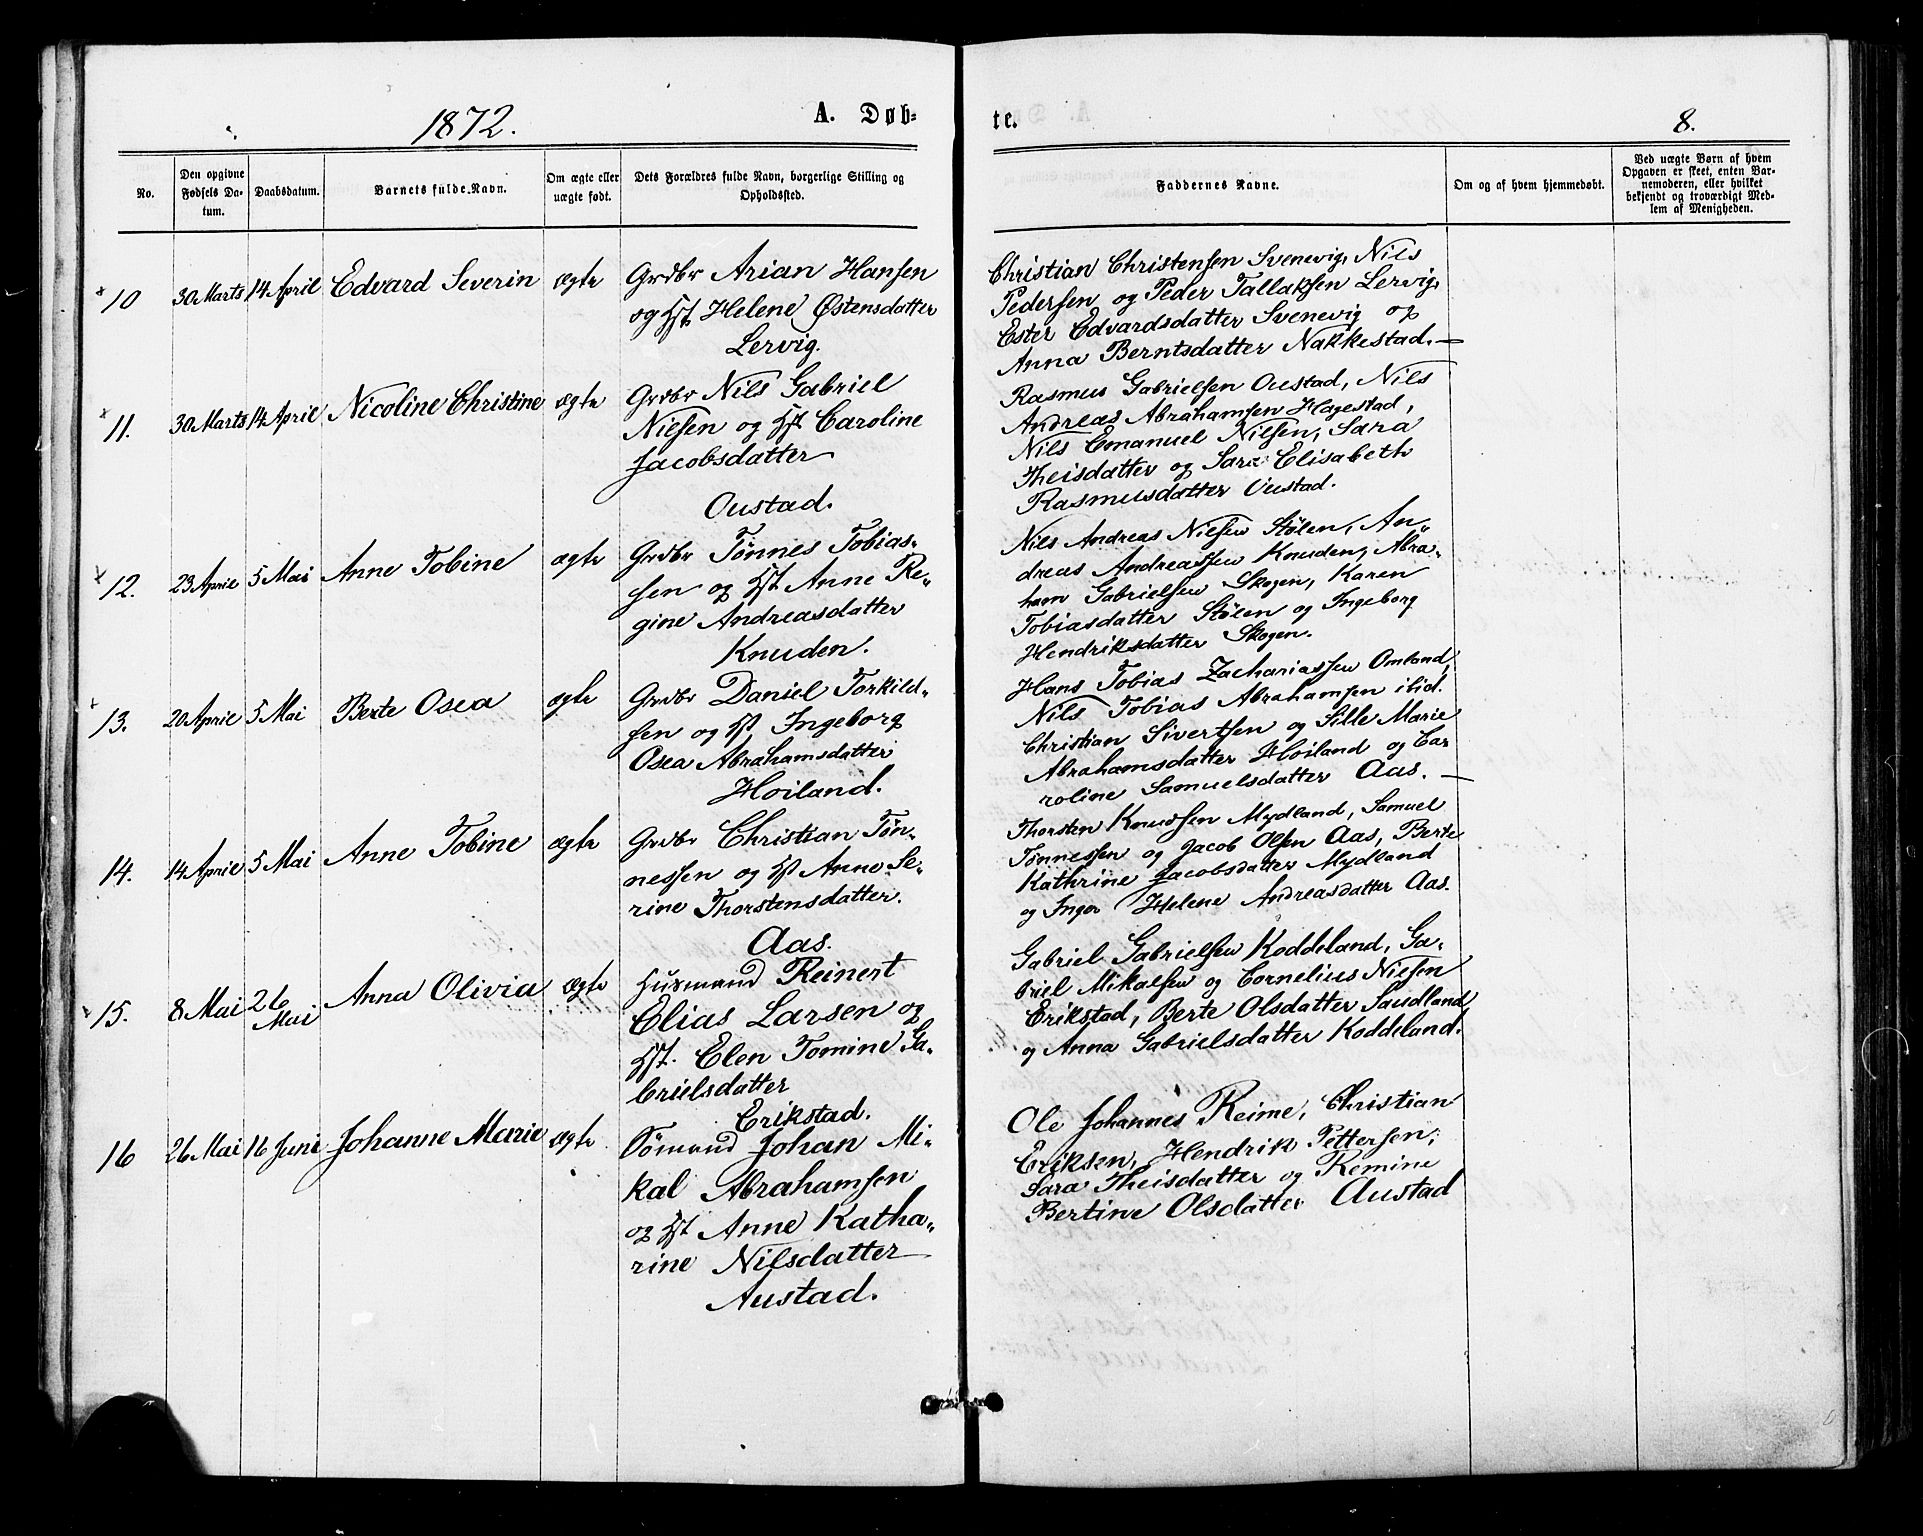 1872.
A. Døb=
te.
8.
No.
Den opgivne
Fødsels Da-
tum.
Daabsdatum.
Barnets fulde Navn.
Om ægte eller
uægte født.
Dets Forældres fulde Navn, borgerlige Stilling og
Opholdssted.
Faddernes Navne.
Om og af hvem hjemmedøbt.
Ved uægte Børn af hvem
Opgaven er skeet, enten Bar-
nemoderen, eller hvilket
bekjendt og troværdigt Med-
lem af Menigheden.
10 30 Marts 14 April Edvard Severin ægte
Grdbr Arian Hansen
og Hst Helene Østensdatter
Lervig.
Christian Christensen Svenevig, Nils
Pedersen og Peder Tallaksen Lervig,
Ester Edvardsdatter Svenevig og
Anna Berntsdatter Nakkestad.—
11. 30 Marts 14 April Nicoline Christine ægte
Grdbr Nils Gabriel
Nielsen og Hst Caroline
Jacobsdatter
Oustad.
Rasmus Gabrielsen Oustad, Nils
Andreas Abrahamsen Hagestad,
Nils Emanuel Nilsen, Sara
Theisdatter og Sara Elisabeth
Rasmusdatter Oustad.
12. 23 April 5 Mai Anne Tobine ægte
Grdbr Tønnes Tobias-
sen og Hst Anne Re-
gine Andreasdatter
Knuden.
Nils Andreas Nielsen Stølen, An-
dreas Andreassen Knuden, Abra-
ham Gabrielsen Skogen, Karen
Tobiasdatter Stølen og Ingeborg
Hendriksdatter Skogen.
13. 20 April 5 Mai Berte Osea ægte
Grdbr Daniel Torkild-
sen og Hst, Ingeborg
Osea Abrahamsdatter
Høiland.
Hans Tobias Zachariassen Omland,
Nils Tobias Abrahamsen ibid.
Christian Sivertsen og Sille Marie
Abrahamsdatter Høiland og Ca-
roline Samuelsdatter Aas.—
14. 14 April 5 Mai Anne Tobine ægte
Grdbr Christian Tøn-
nessen og Hst Anne Se-
rine Thorstensdatter.
Aas.
Thorsten Knudsen Mydland, Samuel
Tønnessen og Jacob Olsen Aas, Berte
Kathrine Jacobsdatter Mydland
og Inger Helene Andreasdatter Aas.
15. 8 Mai 26 Mai Anna Olivia ægte
Husmand Reinert
Elias Larsen og
Hst. Elen Tomine Ga-
brielsdatter
Erikstad.
Gabriel Gabrielsen Koddeland, Ga-
briel Mikalsen og Cornelius Nielsen
Erikstad, Berte Olsdatter Saudland
og Anna Gabrielsdatter Koddeland.
16 26 Mai 16 Juni Johanne Marie ægte
Sømand Johan Mi-
kal Abrahamsen
og Hst Anne Katha-
rine Nilsdatter
Austad.
Ole Johannes Reime, Christian
Eriksen, Hendrik Pettersen,
Sara Theisdatter og Remine
Bertine Olsdatter Austad